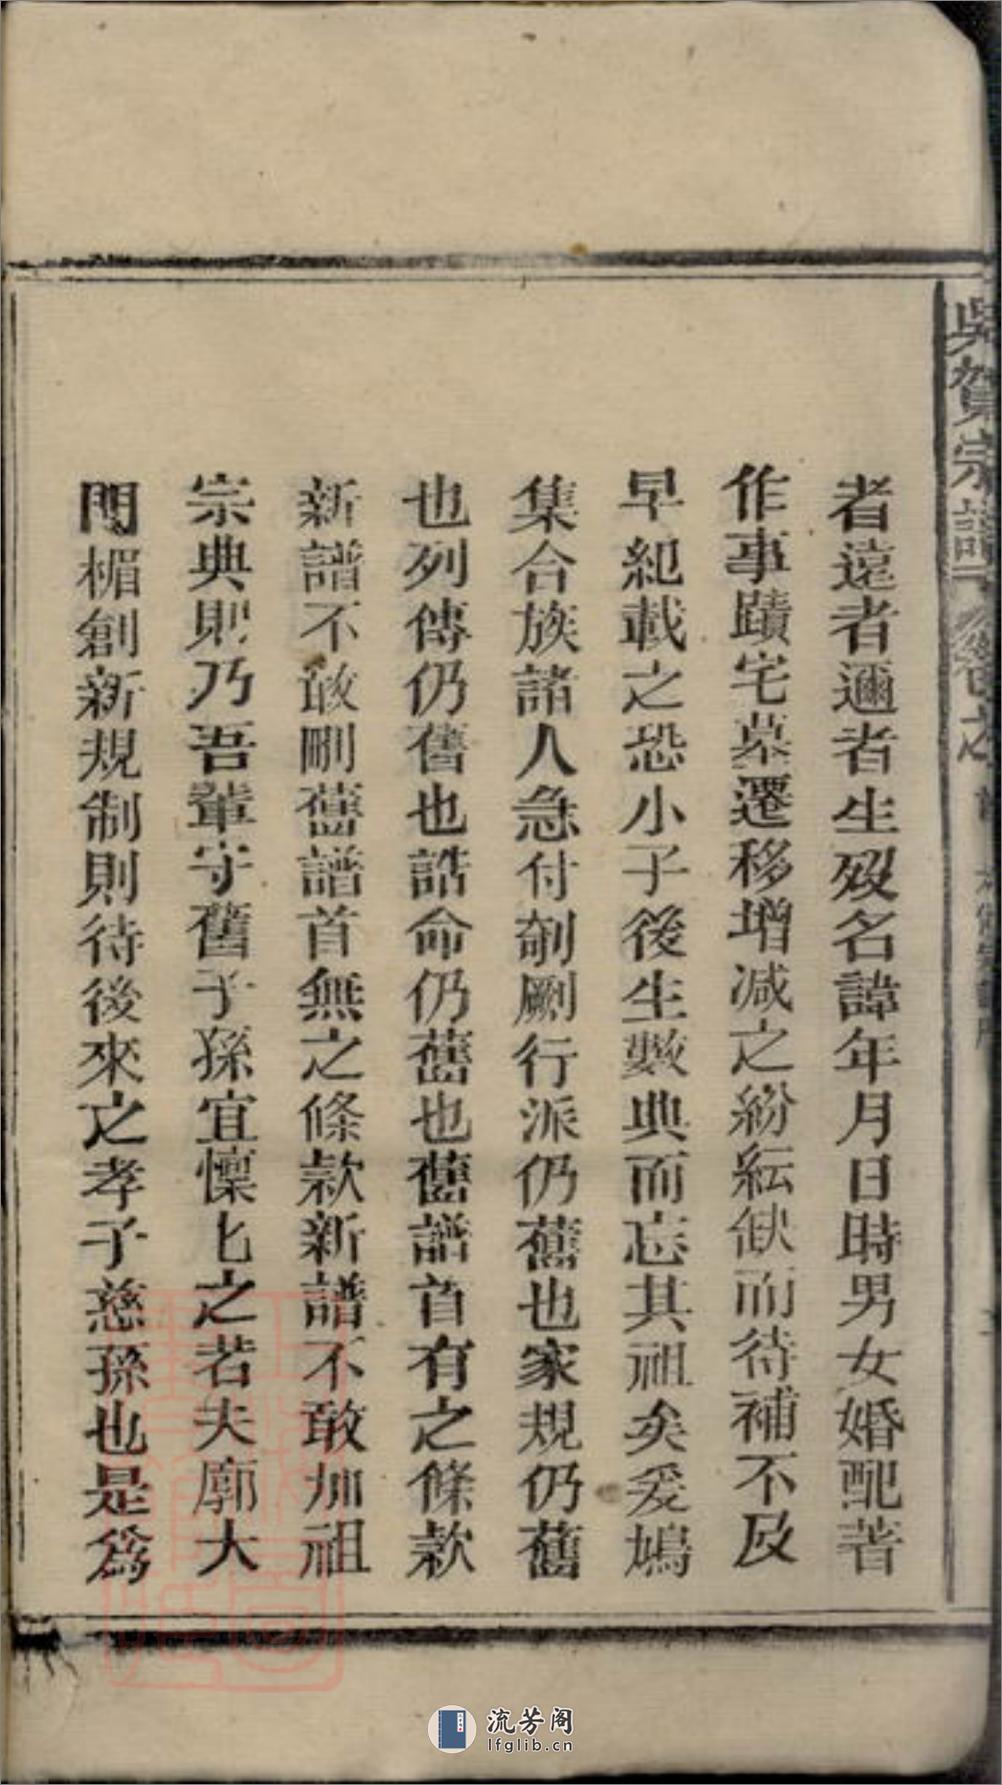 吳賀宗譜 卷之首
者遠者邇者生歿名諱年月日時男女婚配著
作事蹟宅墓遷移增减之紛紜缺而待補不及
早紀載之恐小子後生數典而忘其祖矣爰鳩
集合族諸人急付剞劂行派仍舊也家規仍舊
也列傳仍舊也誥命仍舊也舊譜首有之條款
新譜不敢刪舊譜首無之條款新譜不敢加祖
宗典則乃吾輩守舊子孫宜懍匕之若夫廓大
門楣創新規制則待後來之孝子慈孫也是爲
流芳阁
lfglib.cn